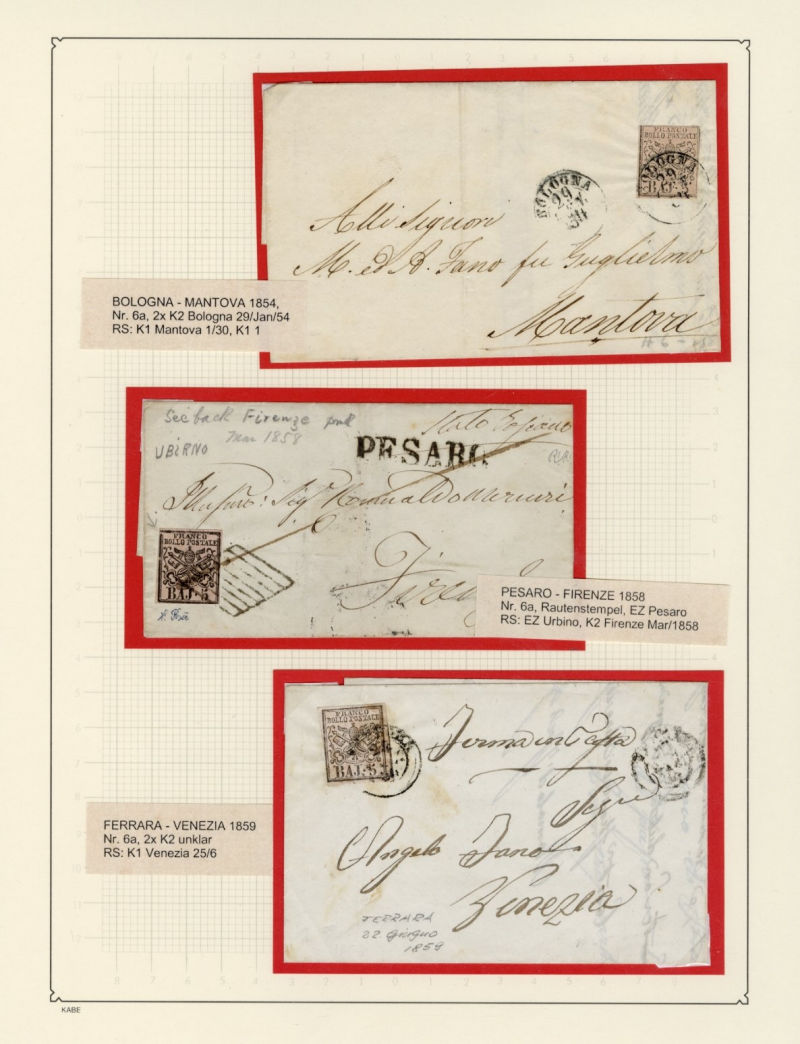 FRANCO
BOLLO POSTALE
BAJ. 5
BOLOGNA
29
BOLOGNA
29
Alli Signori
M. ed A. Fano fu Guglielmo
Mantova
BOLOGNA - MANTOVA 1854,
Nr. 6a, 2x K2 Bologna 29/Jan/54
RS: K1 Mantova 1/30, K1 1
See back Firenze pmk
Mar 1858
UBIRNO
Stato
PESARO
FRANCO
BOLLO POSTALE
BAJ. 5
PESARO - FIRENZE 1858
Nr. 6a, Rautenstempel, EZ Pesaro
RS: EZ Urbino, K2 Firenze Mar/1858
FRANCO
BOLLO POSTALE
BAJ. 5
Ferma in Posta
Sigr
Angelo Fano
Venezia
FERRARA
22 Giugno
1859
FERRARA - VENEZIA 1859
Nr. 6a, 2x K2 unklar
RS: K1 Venezia 25/6
KABE